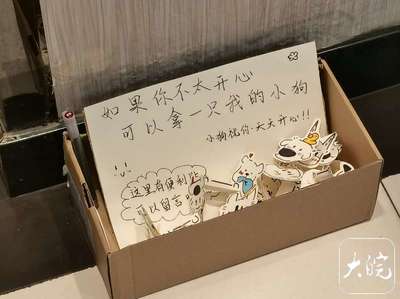 如果你不太开心
可以拿一只我的小狗
小狗祝你天天开心!!
这里有便利贴
可以留言
大皖